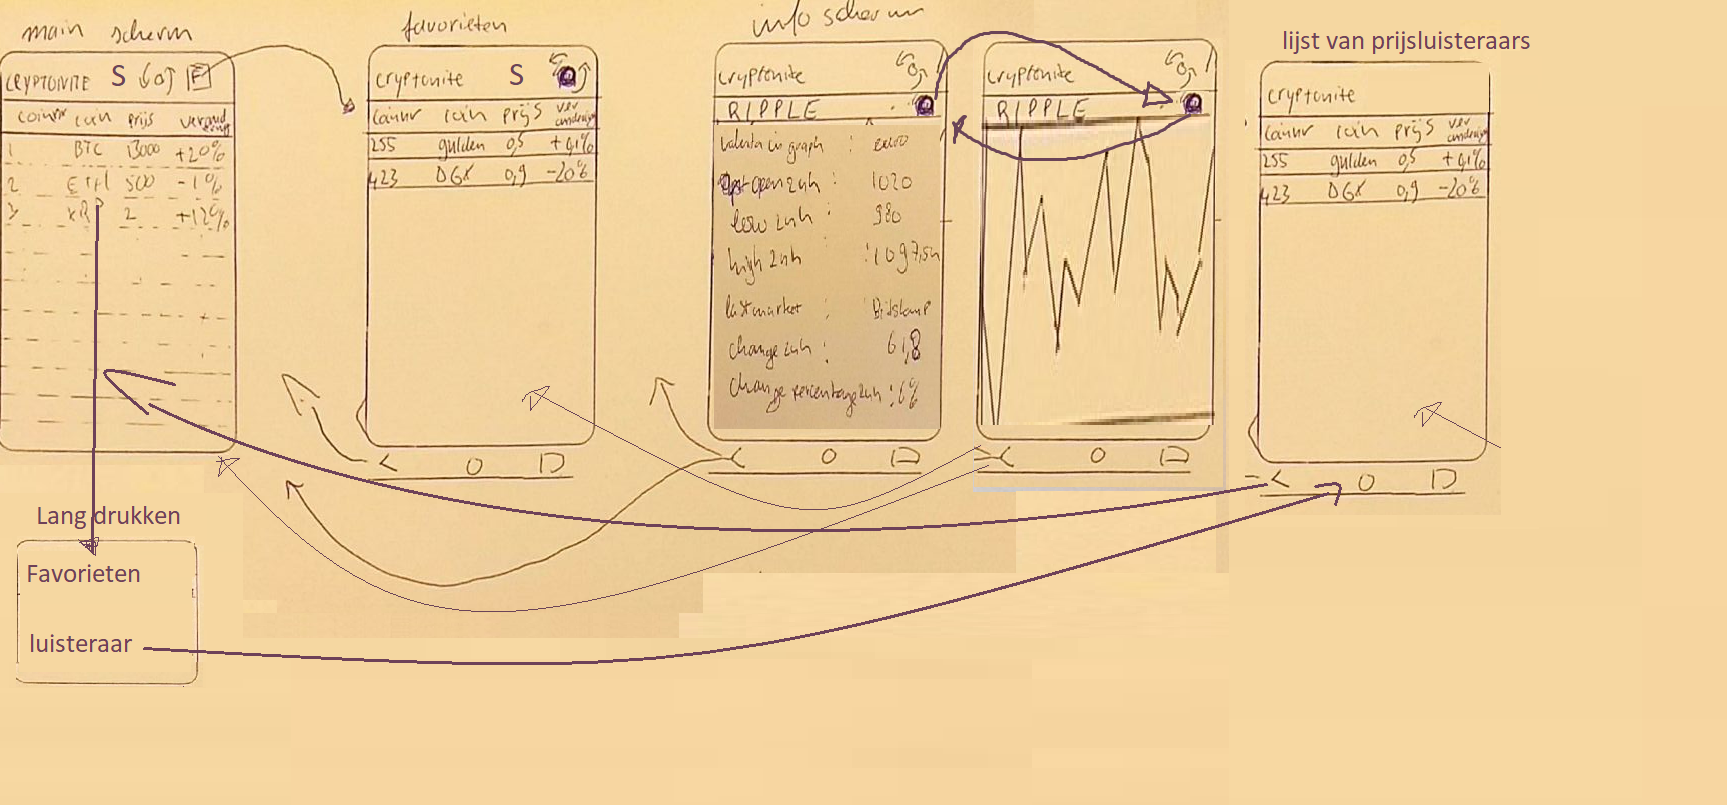 main scherm
CRYPTONITE S F
coinnr coin prijs verandering
1 BTC 13000 +20%
2 ETH 500 -1%
3 XRP 2 +12%
Lang drukken
Favorieten
luisteraar
favorieten
cryptonite S
Coinnr coin prijs verandering
255 gulden 0,5 +0,1%
423 DGX 0,9 -20%
info scherm
cryptonite
RIPPLE
valenta in graph :
open 24h : 1020
low 24h 980
high 24h : 1097,54
lastmarket : Bitstamp
change 24h : 61,8
change percentage 24h : 6%
cryptonite
RIPPLE
lijst van prijsluisteraars
cryptonite
Coinnr coin prijs verandering
255 gulden 0,5 +0,1%
423 DGX 0,9 -20%